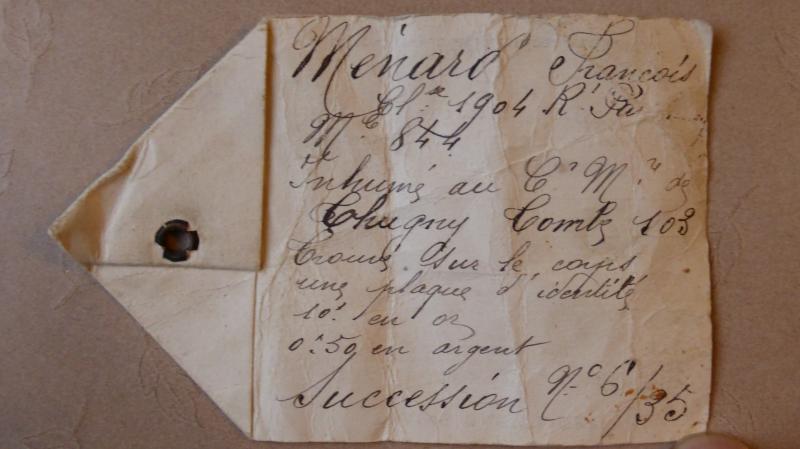 Ménard François
Cl.se 1904 R.t
M.le 844
Inhumé au C.re M.re de
Chugny Tombe 103
Trouvé sur le corps
une plaque d'identité
10f en or
0f50 en argent
Succession N.o 6/35